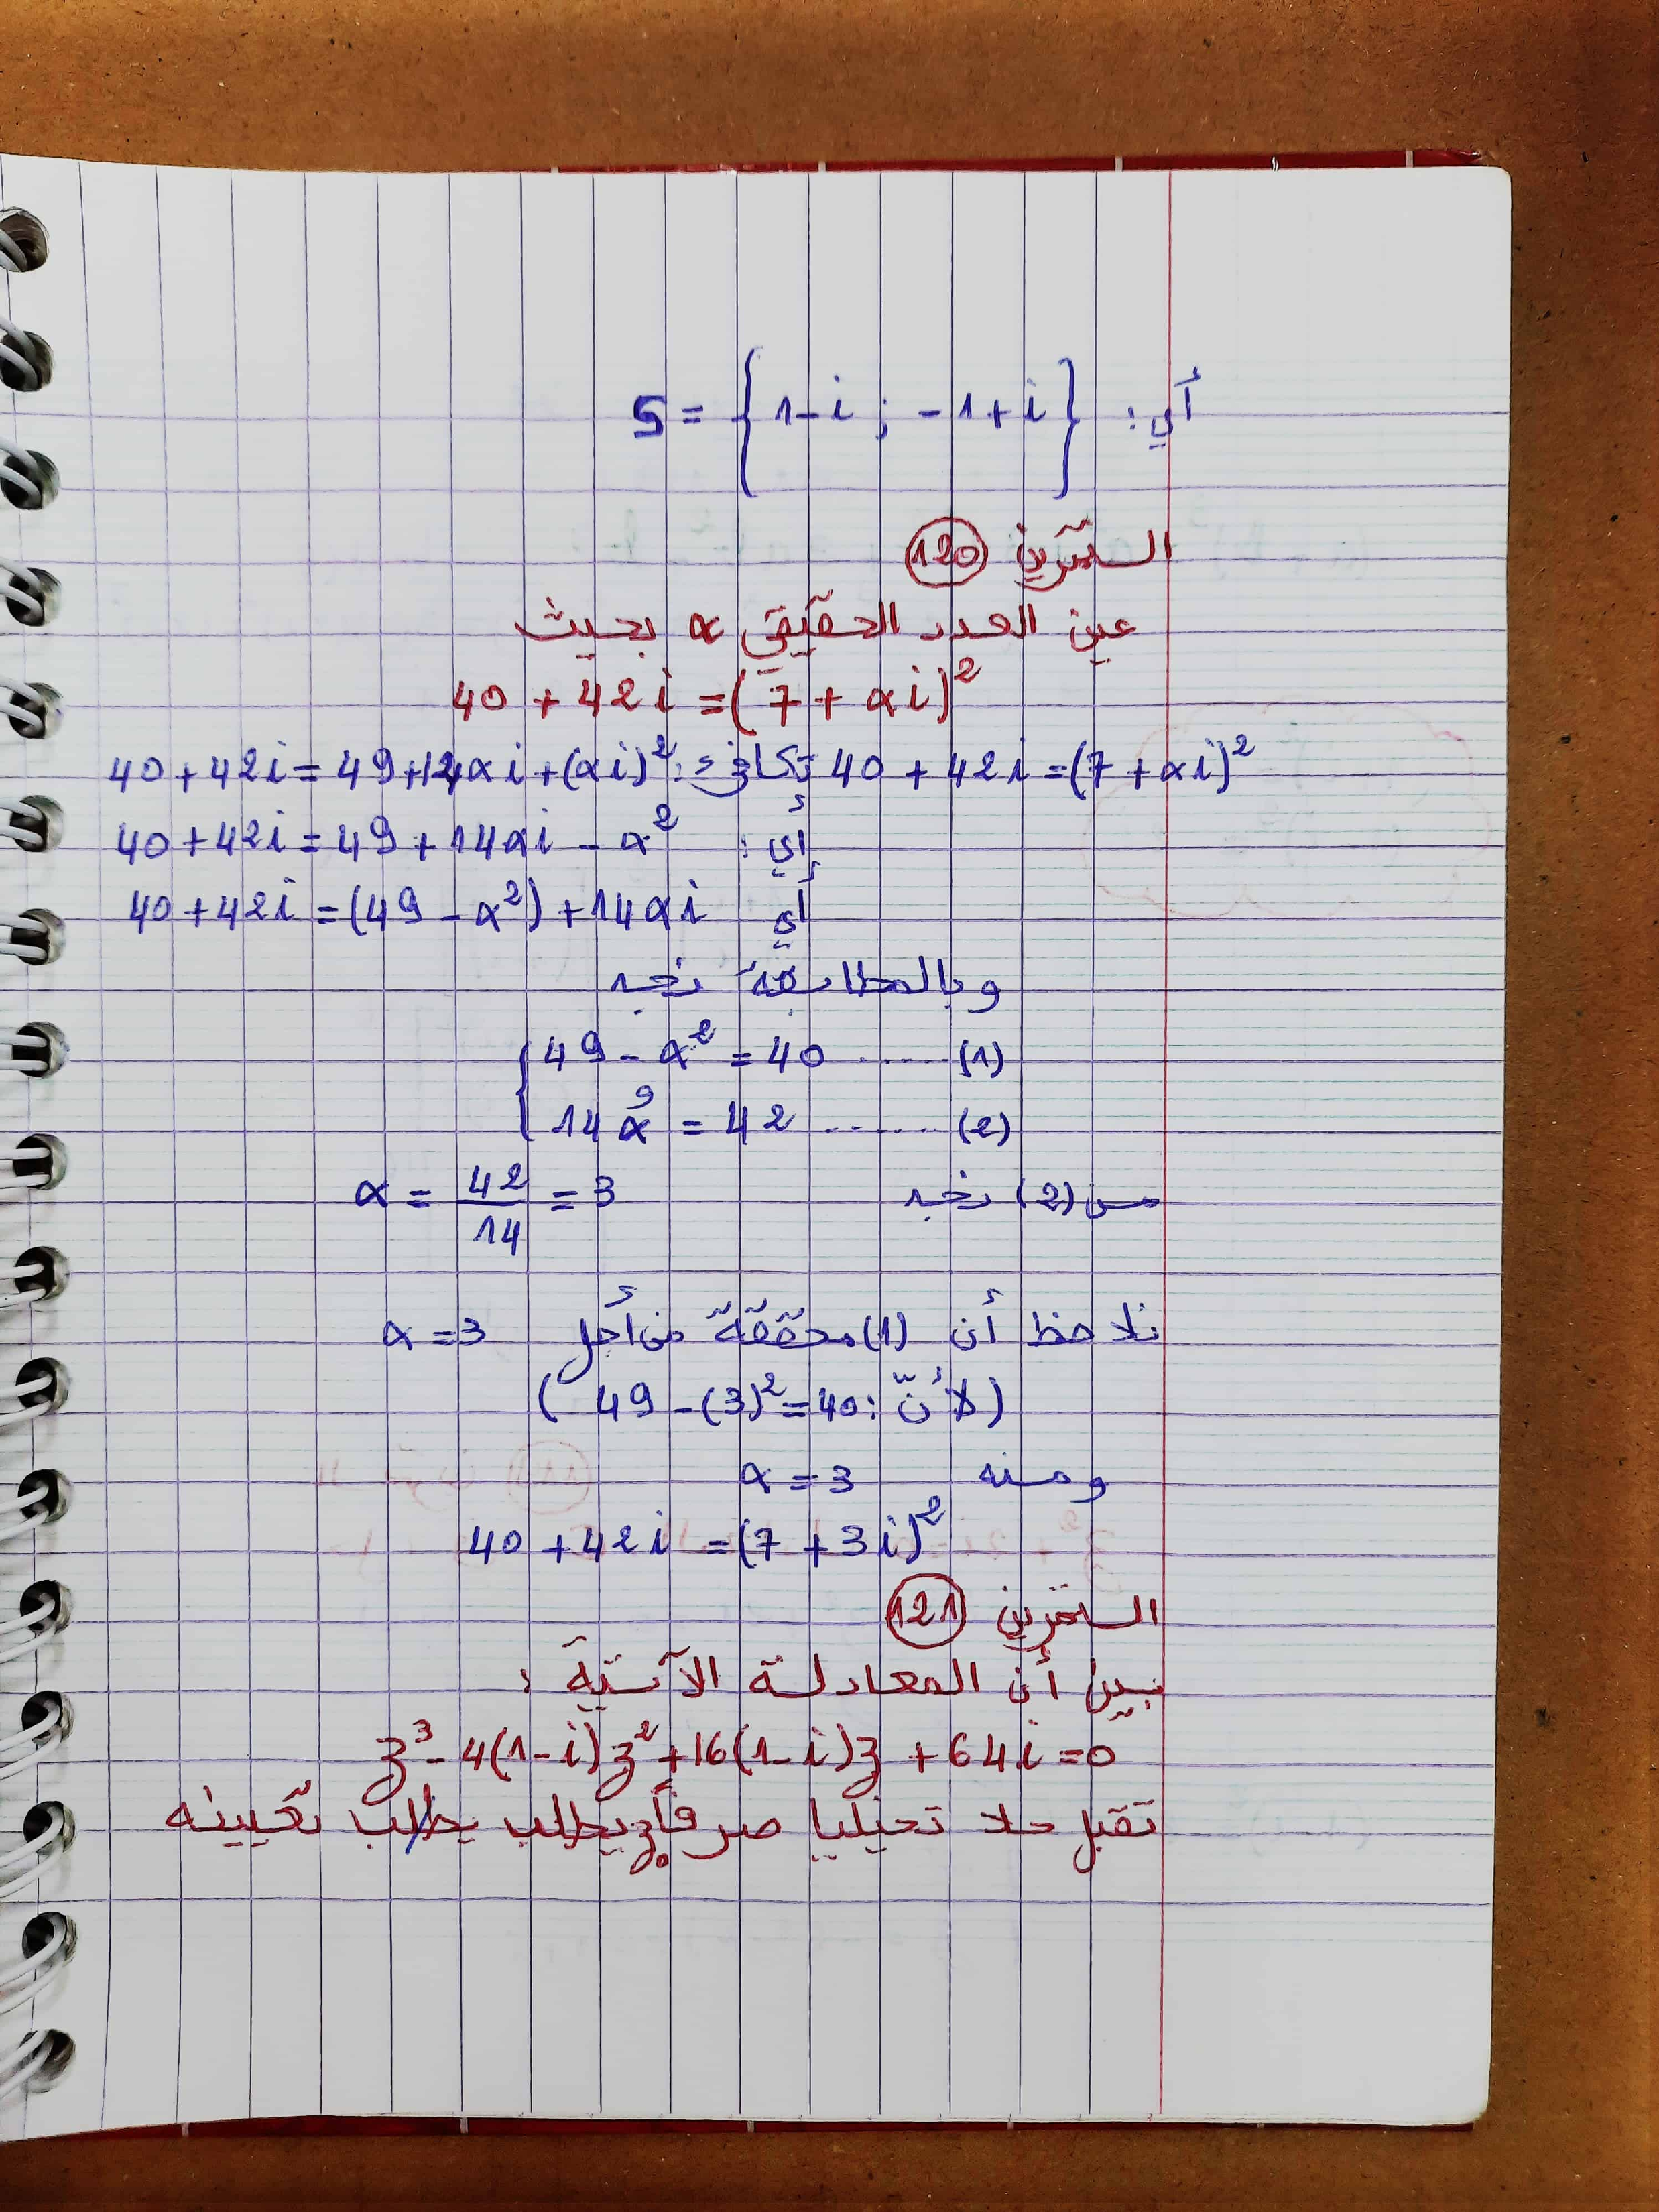 أي: S = { 1-i ; -1+i }
التمرين 120
عين العدد الحقيقي α بحيث
40 + 42i = (7 + αi)²
40 + 42i = (7 + αi)² تكافئ: 40 + 42i = 49 + 14αi + (αi)²
أي: 40 + 42i = 49 + 14αi - α²
أي 40 + 42i = (49 - α²) + 14αi
وبالمطابقة نجد
{ 49 - α² = 40 ...... (1)
و
14α = 42 ...... (2)
من (2) نجد α = 42/14 = 3
نلاحظ أن (1) محققة من أجل α = 3
(لأنّ: 49 - (3)² = 40)
ومنه α = 3
40 + 42i = (7 + 3i)²
التمرين 121
بين أن المعادلة الآتية :
z³ - 4(1-i)z² + 16(1-i)z + 64i = 0
تقبل حلا تخيليا صرفا z₀ يطلب يطلب تعيينه